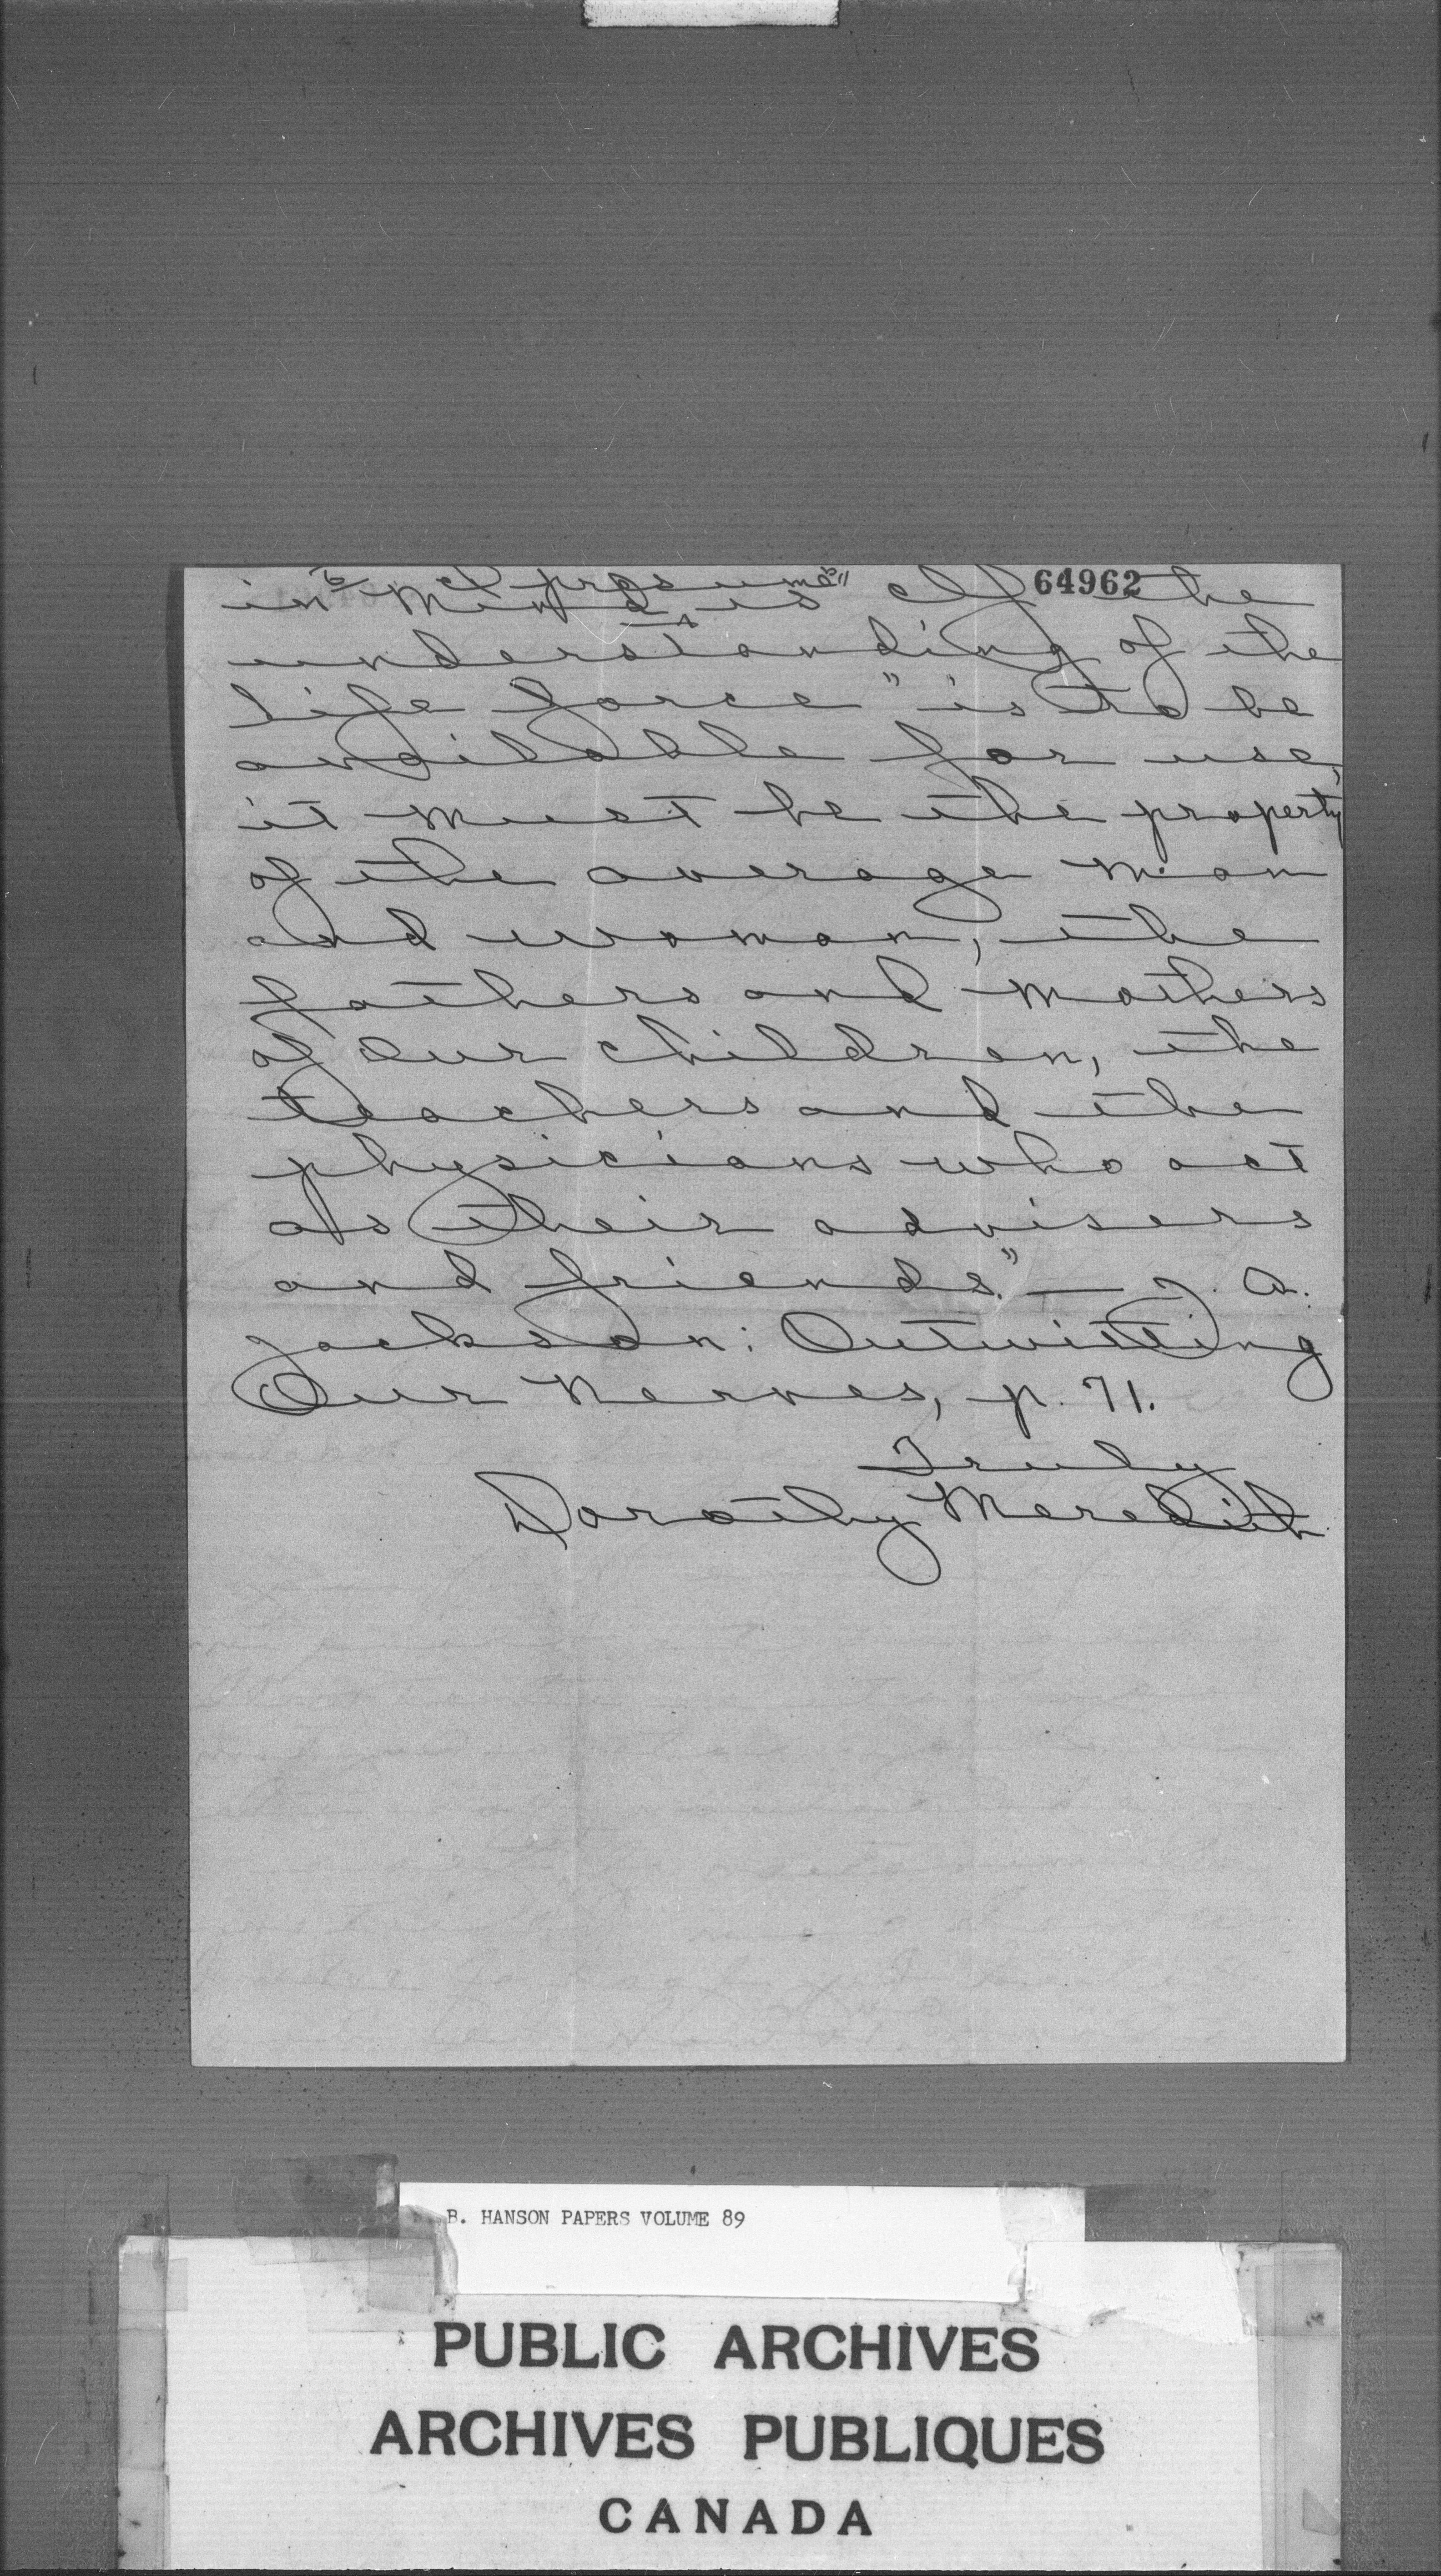 I presume
64962
in mind is "If the
understanding of the
life force" is to be
available for use,
it must be the property
of the average man
and woman, the
fathers and mothers
of our children, the
teachers and the
physicians who act
as their advisers
and friends." — J. A.
Jackson: Outwitting
Our Nerves, p. 71.
Truly
Dorothy Meredith
B. HANSON PAPERS VOLUME 89
PUBLIC ARCHIVES
ARCHIVES PUBLIQUES
CANADA